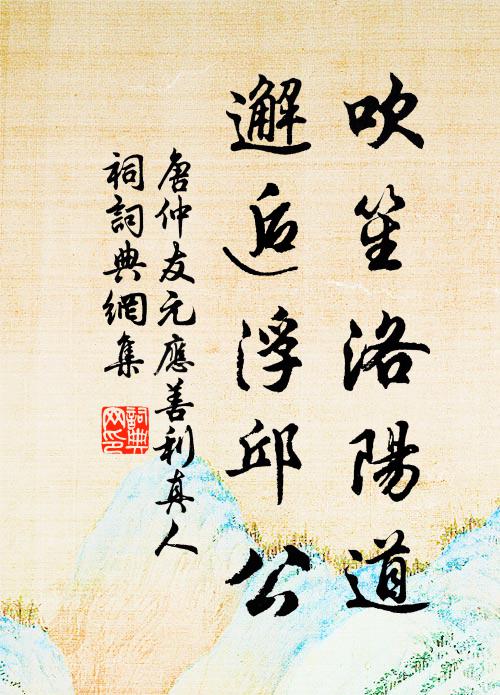 吹笙洛陽道
邂逅浮邱公
唐仲友元應善利真人
祠詞典網集
詞典網印